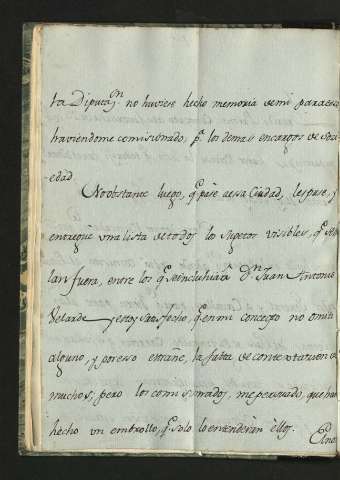 ta Diputan. no huviese hecho memoria de mi para eso
haviendome comisionado, pa. los demas encargos de Soci-
-edad.
No obstante luego, qe. pasè a essa Ciudad, les pasè, y
entreguè una lista de todos los Sugetos visibles, qe.
lan fuera, entre los qe. se incluhia Dn. Juan Antonio
Velarde y estoy satisfecho, qe. en mi concepto no omiti
alguno, y por eso estrañe, la falta de contextacion de
muchos; pero los comisionados, me persuado, que han
hecho un embrollo, qe. solo lo entenderàn ellos.